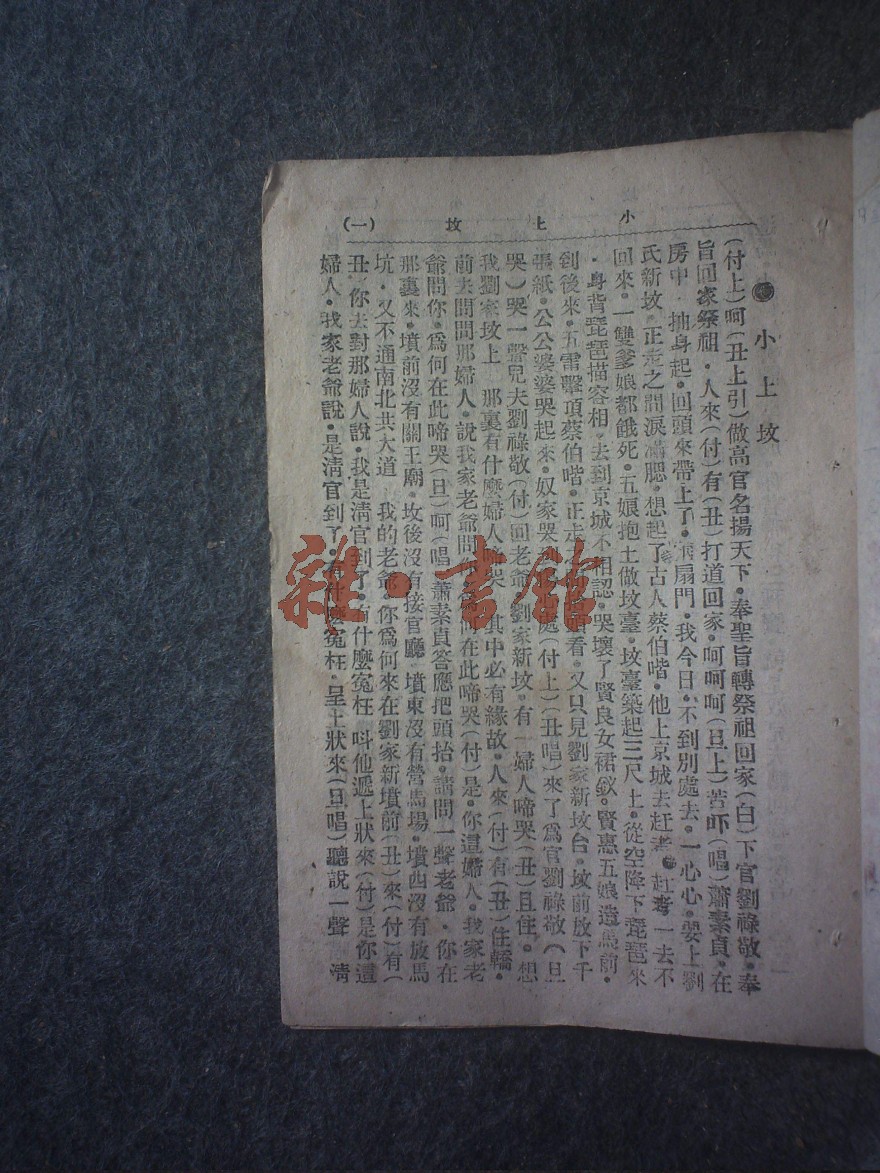 小上坟 (一)
小上坟
(付上)呵(丑上引)做高官名揚天下·奉聖旨轉祭祖回家(白)下官劉祿敬·奉
旨回家祭祖·人來(付)有(丑)打道回家·呵呵呵(旦上)苦吓(唱)蕭素貞·在
房中 抽身起·回頭來帶上了 扇門·我今日·不到別處去·一心心·要上劉
氏新坟·正走之間淚滿腮·想起了古人蔡伯喈·他上京城去赶考·赶考一去不
回來·一雙爹娘都餓死·五娘抱土做坟臺·坟臺築起三尺土·從空降下琵琶來
·身背琵琶描容相·去到京城不相認·哭壞了賢良女裙釵·賢惠五娘造馬前·
到後來·五雷擊項蔡伯喈·正走 看·又只見劉家新坟台·坟前放下千
張紙·公公婆婆哭起來·奴家哭 處(付上)(丑唱)來了爲官劉祿敬(旦
哭)哭一聲兒夫劉祿敬(付)回老爺·劉家新坟·有一婦人啼哭(丑)且住·想
我劉家坟上 那裏有什麼婦人啼哭 其中必有緣故·人來(付)有(丑)住轎·
前去問問那婦人·說我家老爺問你·爲何在此啼哭(付)是·你這婦人·我家老
爺問你·爲何在此啼哭(旦)呵(唱)蕭素貞答應把頭抬·請問一聲老爺·你在
那裏來·墳前沒有關王廟·坟後沒有接官廳·墳東沒有營馬場·墳西沒有放馬
坑·又不通南北共大道 我的老爺·你爲何來在劉家新墳前(丑)來(付)有(
丑·你去對那婦人說·我是清官到了·有什麼寃枉·呌他遞上狀來(付)是你這
婦人·我家老爺說·是清官到了·有什麼寃枉·呈上狀來(旦唱)聽說一聲 清
雜·書館